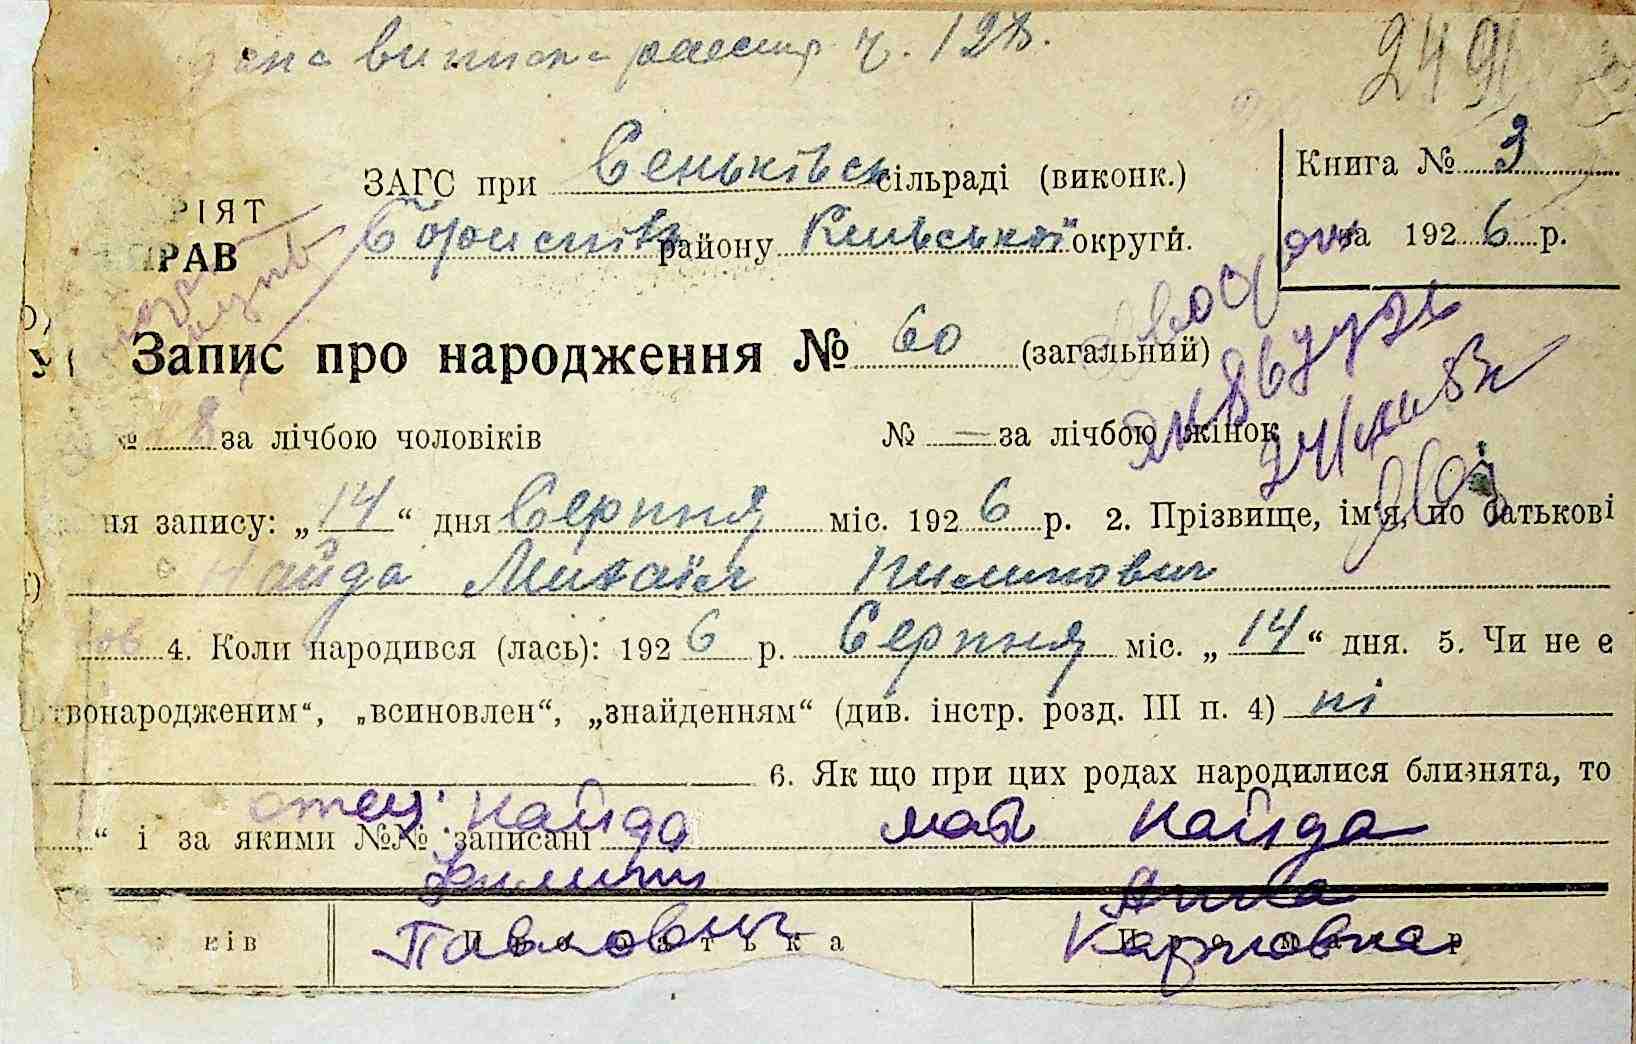 виписка ч. 128.
249
ЗАГС при Сеньківськ сільраді (виконк.)
Книга № 3
РІЯТ
ПРАВ
Бориспіль району Київської округи.
за 1926 р.
Запис про народження № 60 (загальний)
№ 8 за лічбою чоловіків № — за лічбою жінок
ня запису: „14“ дня Серпня міс. 1926 р. 2. Прізвище, ім'я, по батькові
Найда Михаіл Пилипович
4. Коли народився (лась): 1926 р. Серпня міс. „14“ дня. 5. Чи не є
твонародженим“, „всиновлен“, „знайденням“ (див. інстр. розд. III п. 4) ні
6. Як що при цих родах народилися близнята, то
отец: Найда мать Найда
“ і за якими №№ записані
Филипп Анна
Павлович Карповна
ків Про батька Про матір